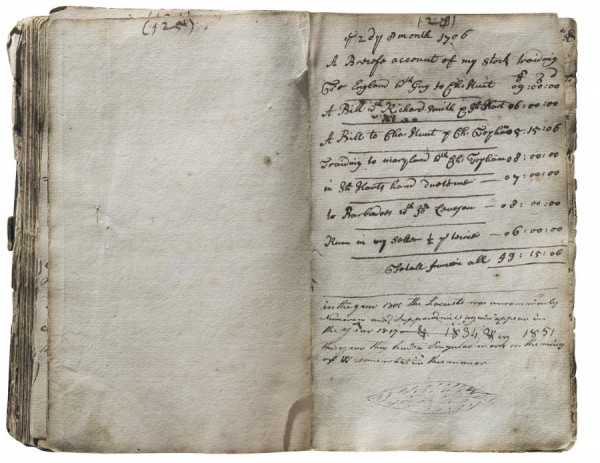 (125)
(128)
ye 2 dy 8 month 1706
A Breefe account of my stock trading
£ s d
To England with Guy to Cha: Hunt 09:00:00
A Bill Richard Smith 06:00:00
A Bill to Cha: Hunt Ch: Topham 05:15:06
Traiding to maryland with Ch: Topham 08:00:00
in hands 07:00:00
to Barbados with Jn 08:00:00
Rum in my Seller 1/2 ye 06:00:00
Totall sum in all 49:15:06
in the year the Locusts was uncommonly
Numerous and again appear in
the year 1817 & 1834 & in 1851
this year they had a Singular mark on the wing
of W somewhat in this manner